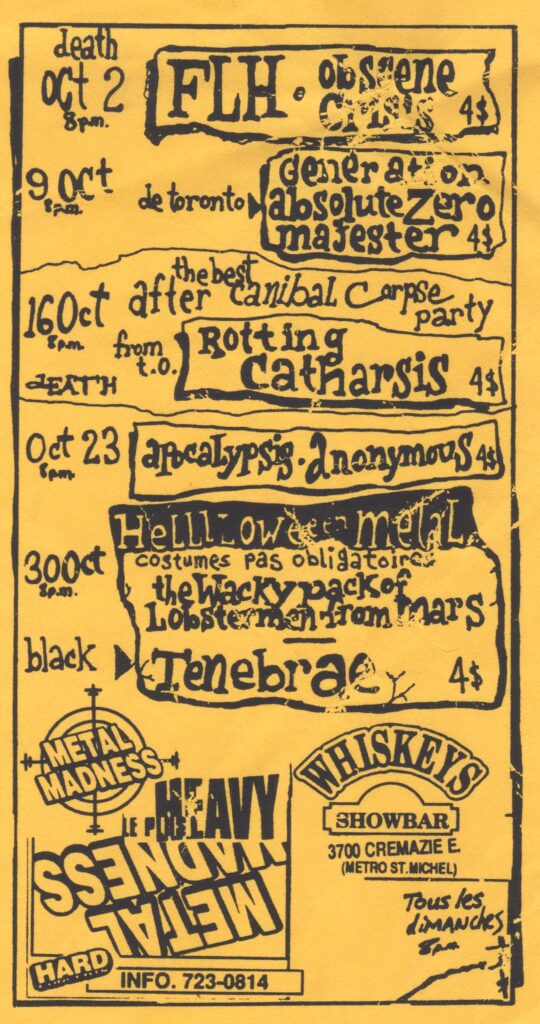 death
oct 2
8 p.m.
FLH • obscene
crisis 4$
9 Oct
8 p.m.
de toronto
generation
absolute Zero
majester 4$
16 Oct
8 p.m.
the best
after canibal corpse
party
from
t.o.
Rotting
Catharsis 4$
dEATH
Oct 23
8 p.m.
apocalypsig • anonymous 4$
30 Oct
8 p.m.
Hellloween metal
costumes pas obligatoires
the Wacky pack of
Lobstermen from mars
black
Tenebrae 4$
METAL
MADNESS
LE PLUS HEAVY
METAL
MADNESS
HARD
INFO. 723-0814
WHISKEYS
SHOWBAR
3700 CREMAZIE E.
(METRO ST.MICHEL)
Tous les
dimanches
8 p.m.